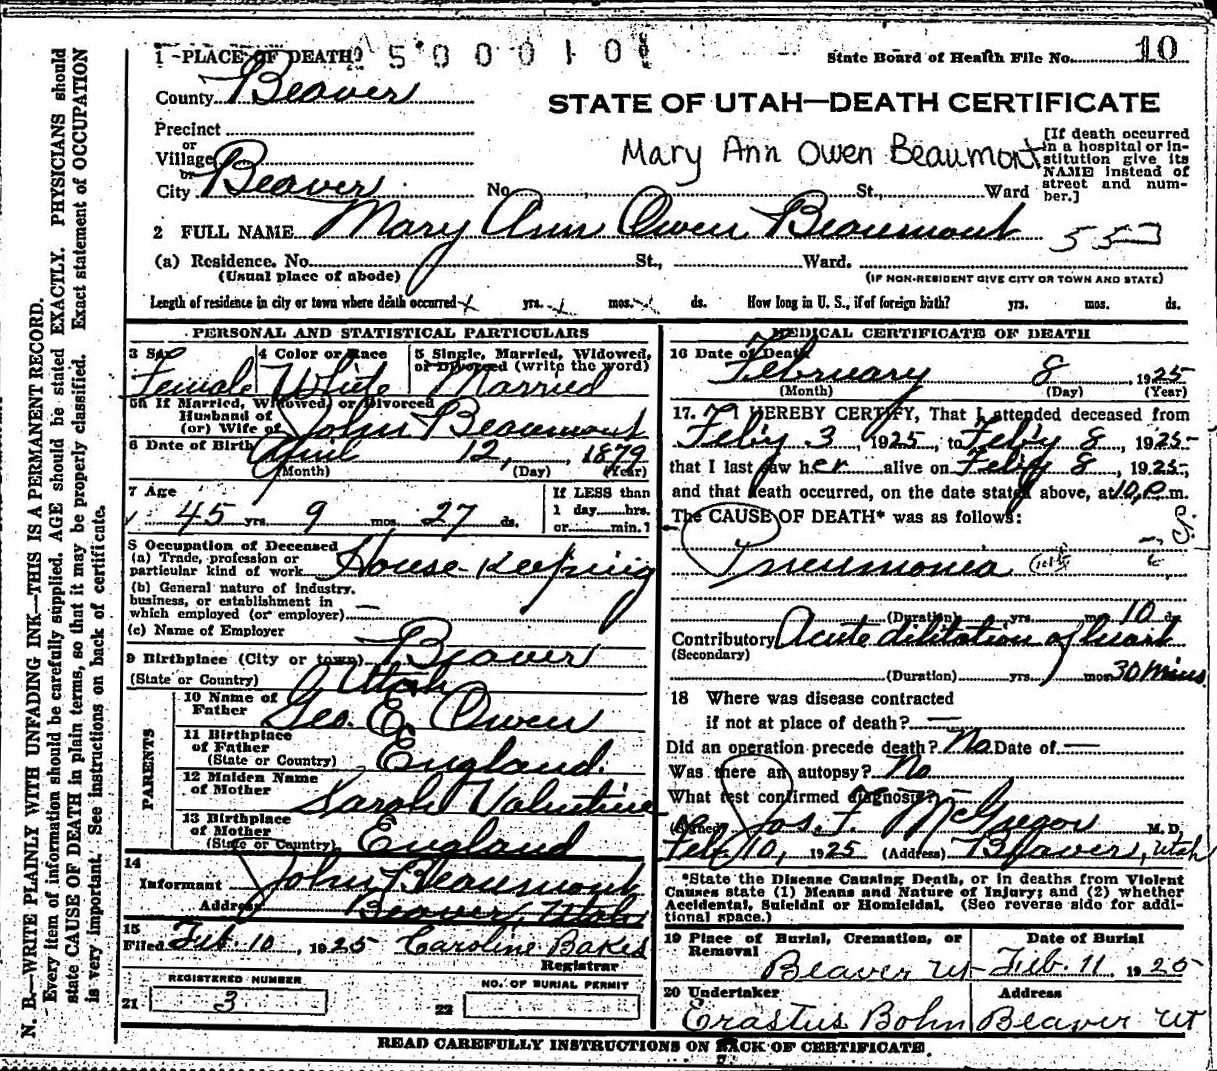 1 PLACE OF DEATH 5 0 0 0 1 0 State Board of Health File No. 10
County Beaver
STATE OF UTAH—DEATH CERTIFICATE
Precinct
or
Village
or
City Beaver No. St., Ward
Mary Ann Owen Beaumont
[If death occurred in a hospital or institution give its NAME instead of street and number.]
2 FULL NAME Mary Ann Owen Beaumont 553
(a) Residence. No. St., Ward.
(Usual place of abode) (IF NON-RESIDENT GIVE CITY OR TOWN AND STATE)
Length of residence in city or town where death occurred yrs. mos. ds. How long in U. S., if of foreign birth? yrs. mos. ds.
PERSONAL AND STATISTICAL PARTICULARS
3 Sex Female
4 Color or Race White
5 Single, Married, Widowed, or Divorced (write the word) Married
5a If Married, Widowed, or Divorced
Husband of
(or) Wife of John Beaumont
6 Date of Birth April 12, 1879
(Month) (Day) (Year)
7 Age
45 yrs. 9 mos. 27 ds.
If LESS than
1 day hrs.
or min.?
8 Occupation of Deceased
(a) Trade, profession or
particular kind of work House-Keeping
(b) General nature of industry,
business, or establishment in
which employed (or employer) —
(c) Name of Employer
9 Birthplace (City or town) Beaver
(State or Country) Utah
PARENTS
10 Name of
Father Geo. E. Owen
11 Birthplace
of Father
(State or Country) England.
12 Maiden Name
of Mother Sarah Valentine
13 Birthplace
of Mother
(State or Country) England
14
Informant John Beaumont
Address Beaver, Utah
15
Filed Feb. 10, 1925 Caroline Bakes
Registrar
REGISTERED NUMBER
21 3
NO. OF BURIAL PERMIT
22
MEDICAL CERTIFICATE OF DEATH
16 Date of Death
February 8, 1925
(Month) (Day) (Year)
17. I HEREBY CERTIFY, That I attended deceased from
Feb'y 3, 1925, to Feb'y 8, 1925
that I last saw her alive on Feb'y 8, 1925,
and that death occurred, on the date stated above, at 10, P. m.
The CAUSE OF DEATH* was as follows:
Pneumonia
(Duration) yrs. mos. 10 ds.
Contributory Acute dilitation of heart
(Secondary)
(Duration) yrs. mos. 30 mins.
18 Where was disease contracted
if not at place of death? —
Did an operation precede death? No. Date of —
Was there an autopsy? No
What test confirmed diagnosis? —
(Signed) Jos. F. McGregor M. D.
Feb. 10, 1925 (Address) Beaver, Utah
*State the Disease Causing Death, or in deaths from Violent
Causes state (1) Means and Nature of Injury; and (2) whether
Accidental, Suicidal or Homicidal. (See reverse side for addi-
tional space.)
19 Place of Burial, Cremation, or
Removal
Beaver Ut
Date of Burial
Feb. 11 1925
20 Undertaker
Erastus Bohn
Address
Beaver Ut
READ CAREFULLY INSTRUCTIONS ON BACK OF CERTIFICATE.
N. B.—WRITE PLAINLY WITH UNFADING INK—THIS IS A PERMANENT RECORD.
Every item of information should be carefully supplied. AGE should be stated EXACTLY. PHYSICIANS should
state CAUSE OF DEATH in plain terms, so that it may be properly classified. Exact statement of OCCUPATION
is very important. See instructions on back of certificate.